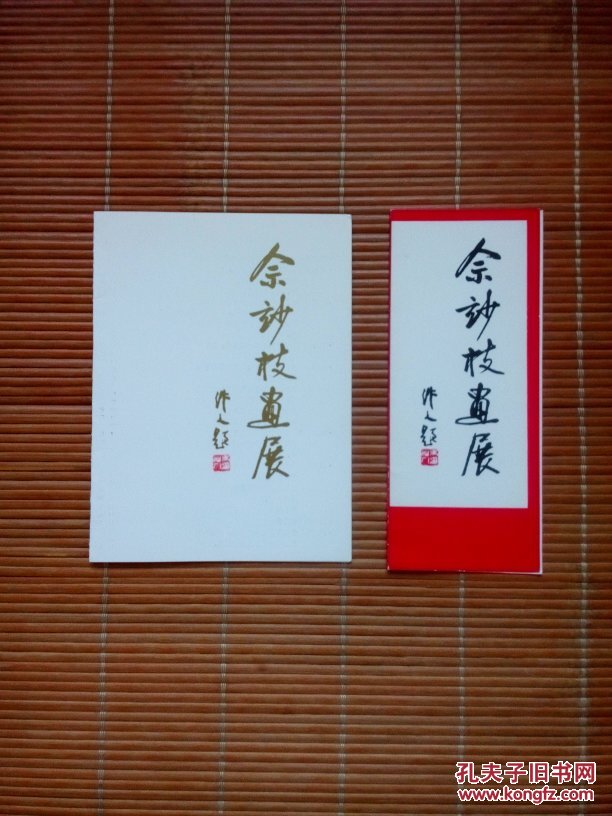 佘玅枝畫展
作人題
佘玅枝畫展
作人題
孔夫子旧书网
www.kongfz.com